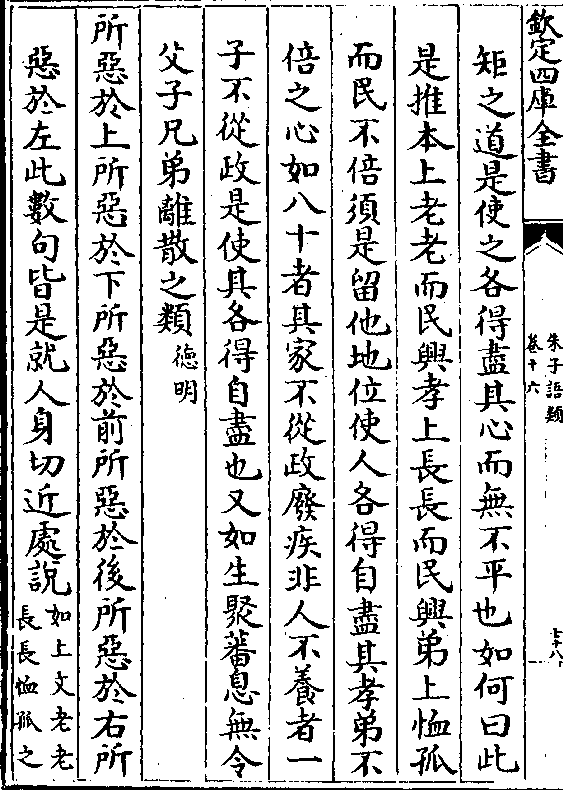 欽定四庫全書
朱子語類
卷十六
矩之道是使之各得盡其心而無不平也如何曰此
是推本上老老而民興孝上長長而民興弟上恤孤
而民不倍須是留他地位使人各得自盡其孝弟不
倍之心如八十者其家不從政廢疾非人不養者一
子不從政是使其各得自盡也又如生聚蕃息無令
父子兄弟離散之類德明
所惡於上所惡於下所惡於前所惡於後所惡於右所
惡於左此數句皆是就人身切近處說如上文老老
長長恤孤之